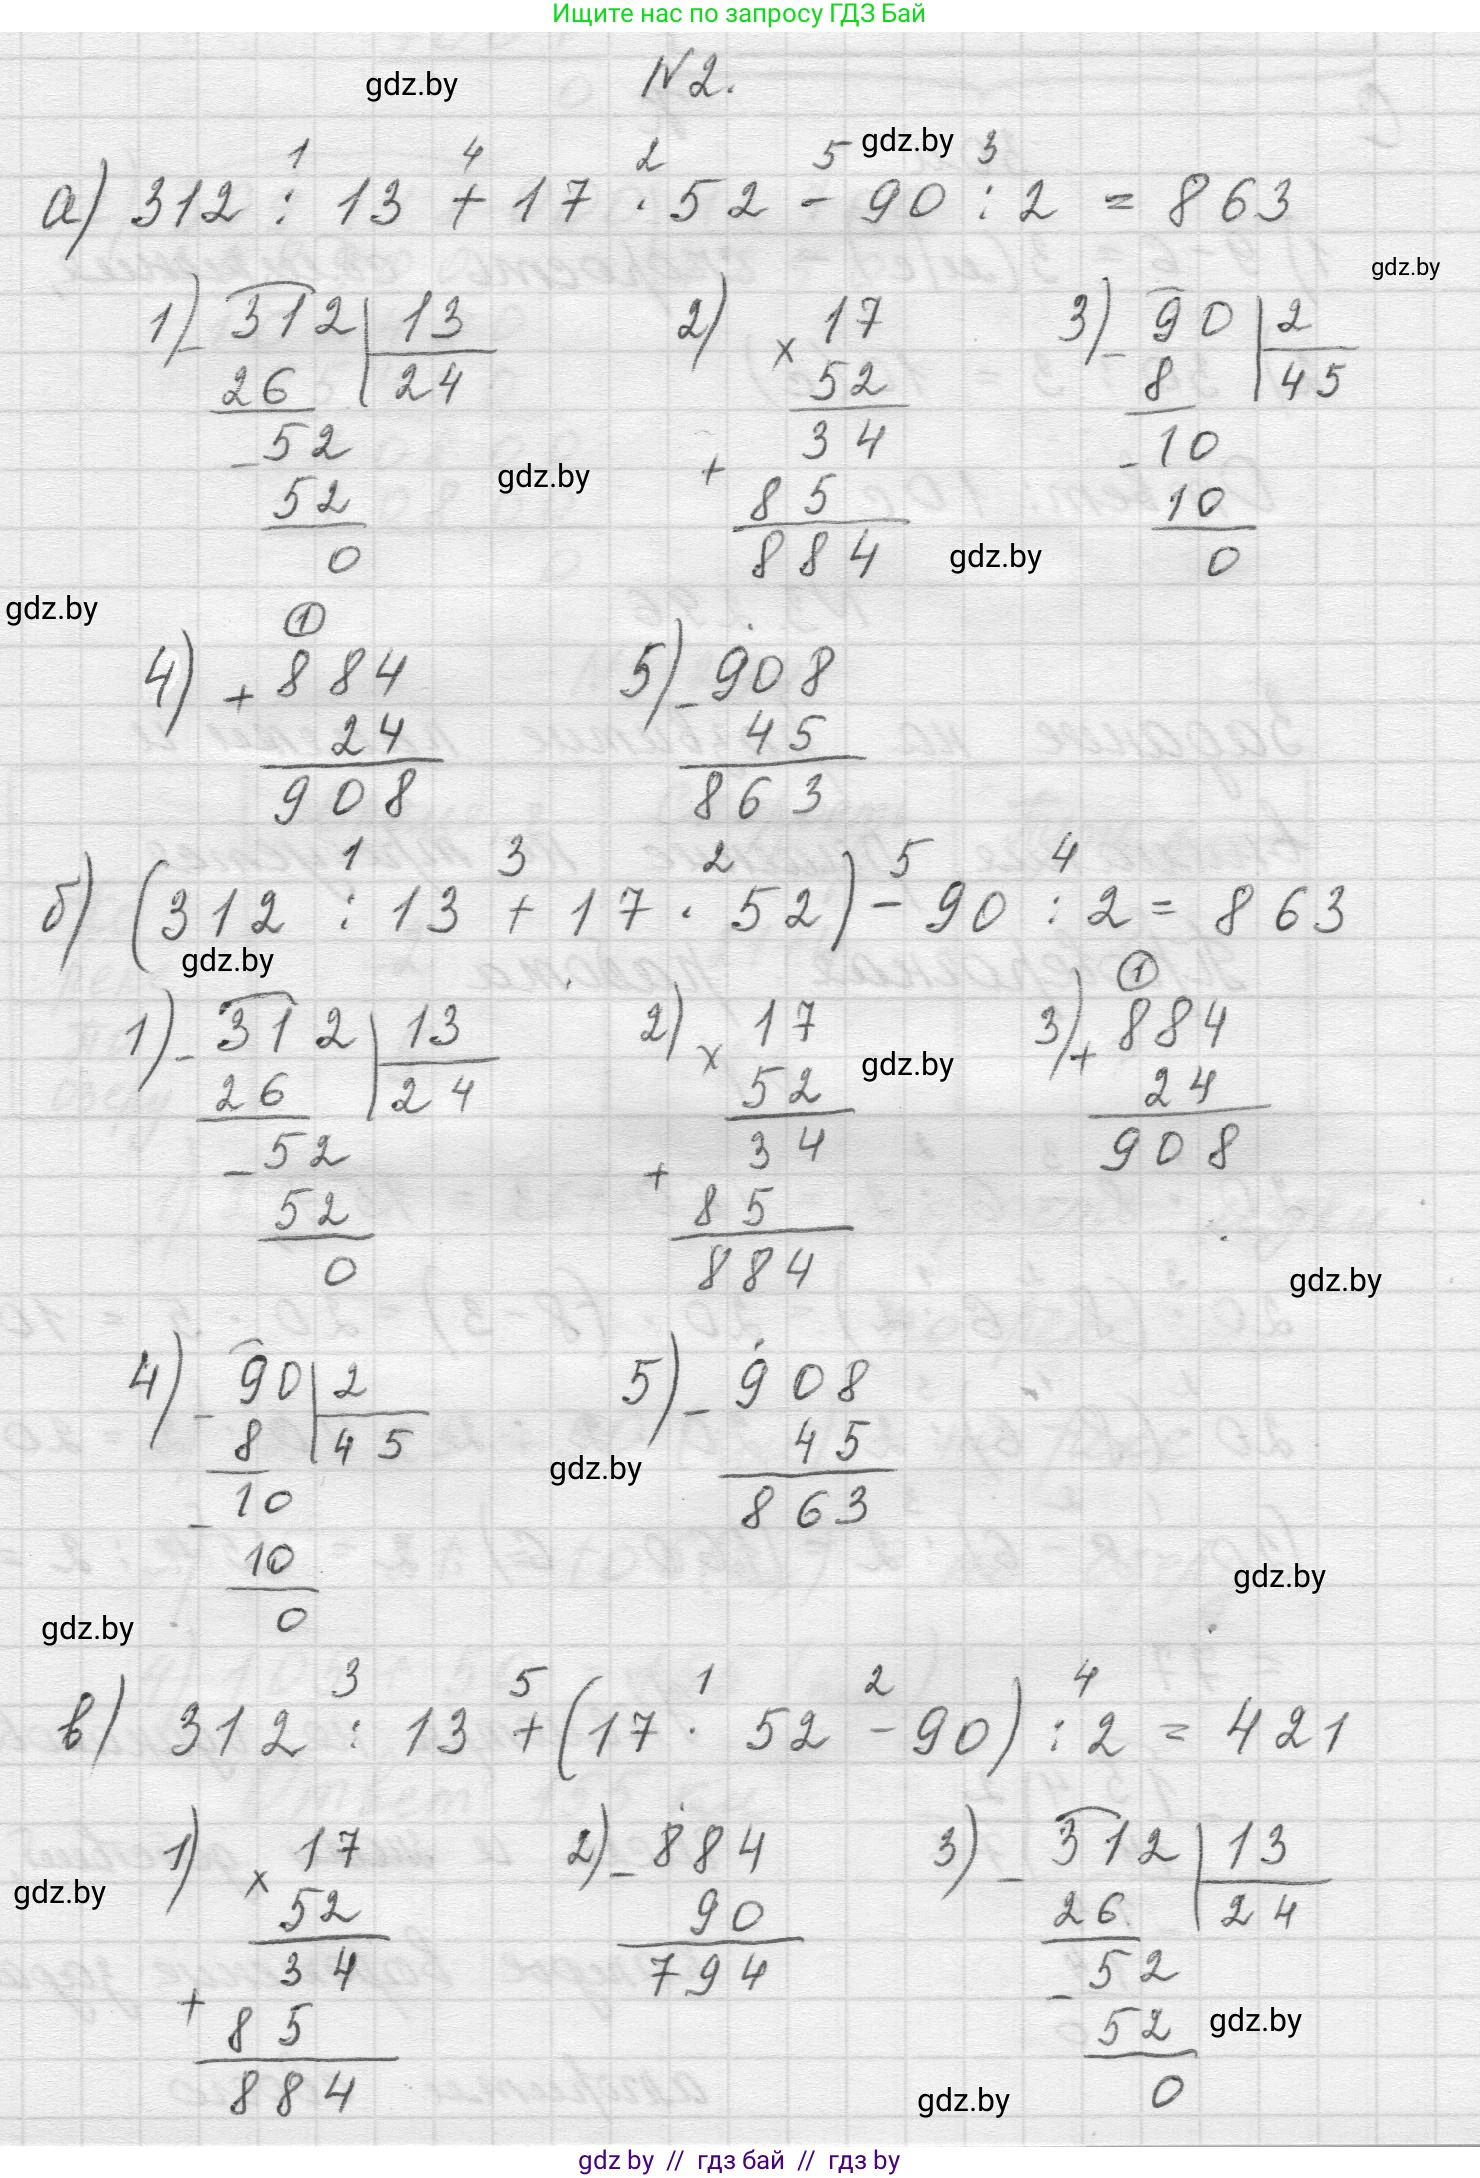 Ищите нас по запросу ГДЗ Бай
gdz.by
N2.
gdz.by
1 4 2 5 3
а) 312 : 13 + 17 · 52 - 90 : 2 = 863
gdz.by
1) - 312 | 13 2) 17 3) - 90 | 2
26 24 × 52 8 45
- 52 34 - 10
gdz.by
52 + 85 10
0 884 0
gdz.by
gdz.by
1
4) + 884 5) - 908
24 45
908 863
1 3 2 5 4
б) (312 : 13 + 17 · 52) - 90 : 2 = 863
gdz.by
1
1) - 312 | 13 2) 17 3) + 884
gdz.by
26 24 × 52 24
- 52 34 908
52 + 85
0 884
gdz.by
4) - 90 | 2 5) - 908
8 45 45
gdz.by
- 10 863
10
gdz.by
0
gdz.by
3 5 1 2 4
в) 312 : 13 + (17 · 52 - 90) : 2 = 421
1) 17 2) - 884 3) - 312 | 13
gdz.by
× 52 90 26 24
34 794 - 52
+ 85 52
gdz.by
884 0
gdz.by
gdz by // гдз бай // гдз by